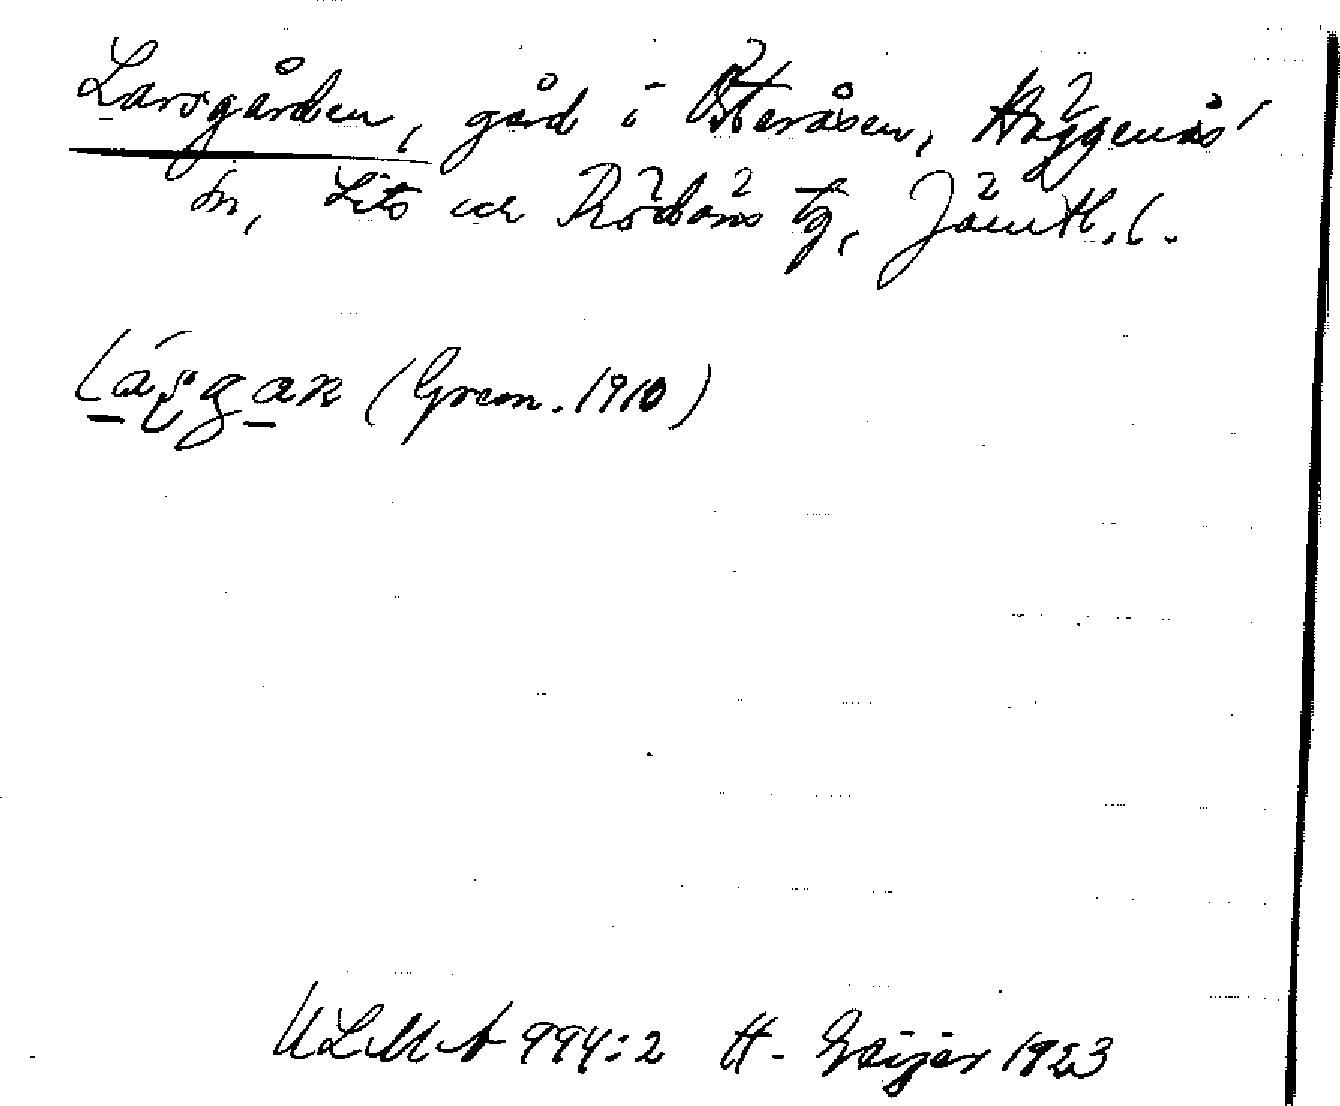 Larsgården, gård i Österåsen, Häggenås
sn, Lits och Rödöns tg, Jämtl. l.
(Grem. 1910)
ULMA 994:2 H. Geijer 1923